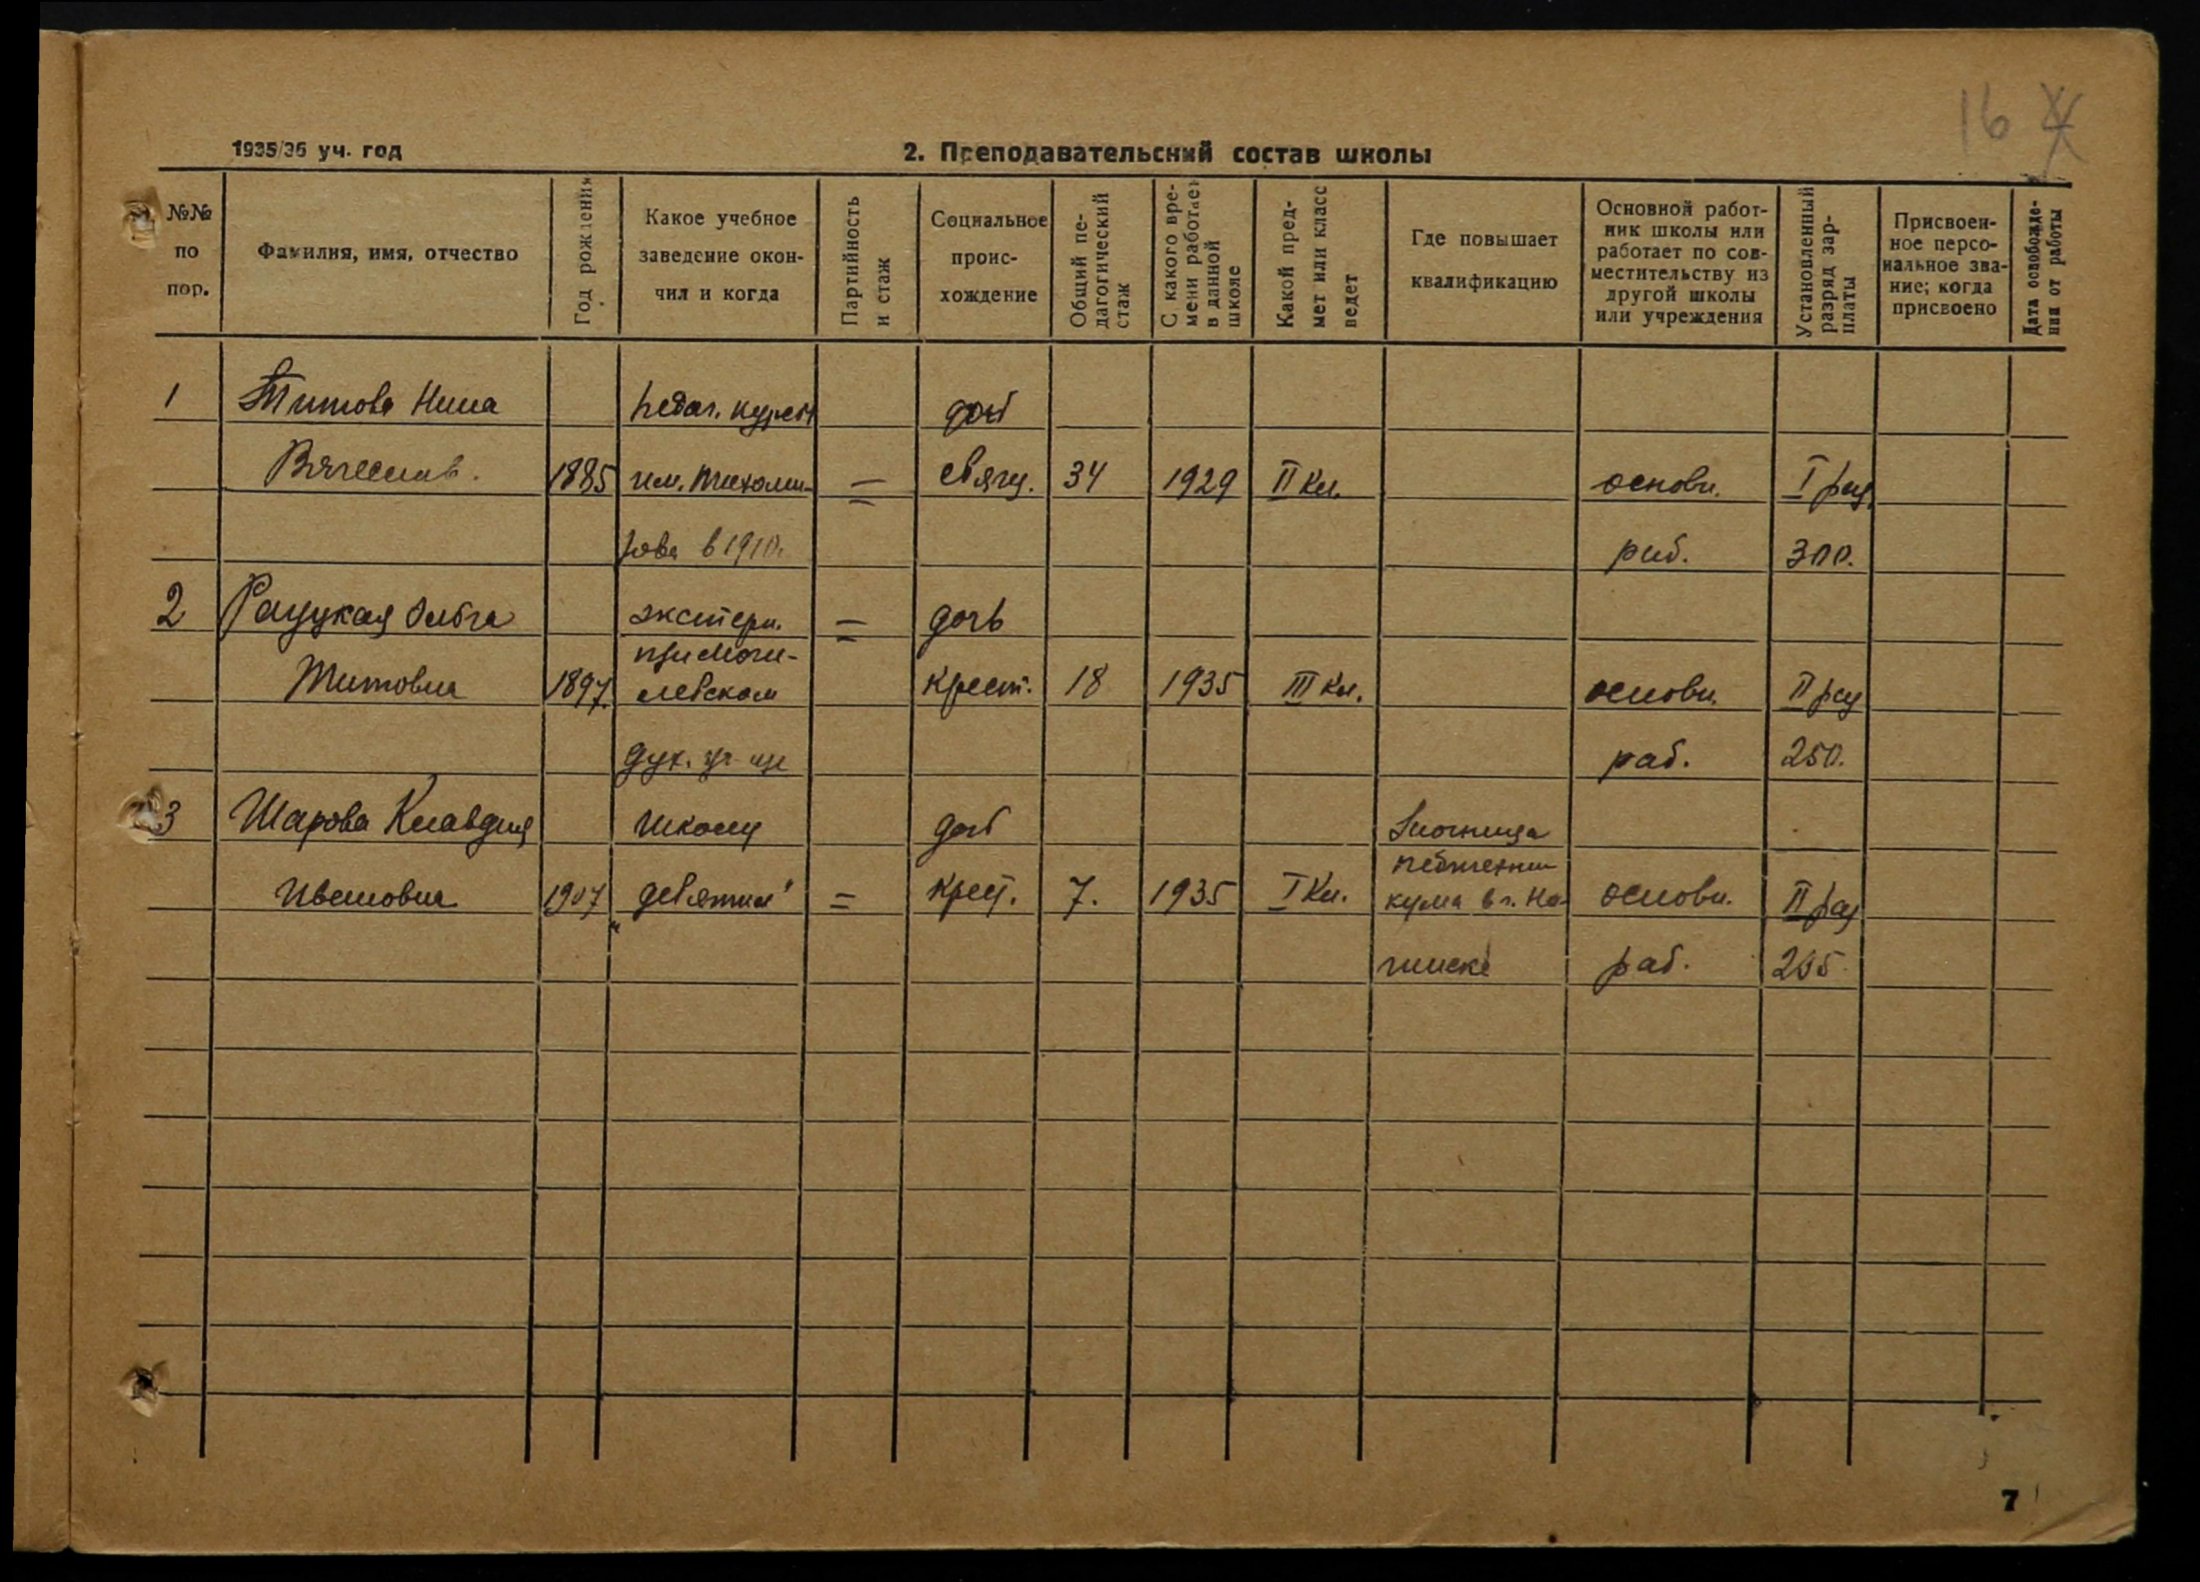 16
1935/36 уч. год
2. Преподавательский состав школы
№№ по пор.
Фамилия, имя, отчество
Год рождения
Какое учебное заведение окончил и когда
Партийность и стаж
Социальное происхождение
Общий педагогический стаж
С какого времени работает в данной школе
Какой предмет или класс ведет
Где повышает квалификацию
Основной работник школы или работает по совместительству из другой школы или учреждения
Установленный разряд зарплаты
Присвоенное персональное звание; когда присвоено
Дата освобождения от работы
1 Титова Нина педаг. курсы доч
Вячеслав. 1885 им. Тихоми- = свящ. 34 1929 II кл. основн. I раз.
рова в 1910. раб. 300.
2 Рацукая Ольга экстерн. = дочь
при Моги-
Титовна 1897. левском крест. 18 1935 III кл. основн. II раз
дух. уч-ще раб. 250.
3 Шарова Клавдия школу доч Заочница
педтехни-
Ивановна 1907 девятил = крест. 7. 1935 I кл. кума в г. Но- основн. II раз
гинске раб. 205
7